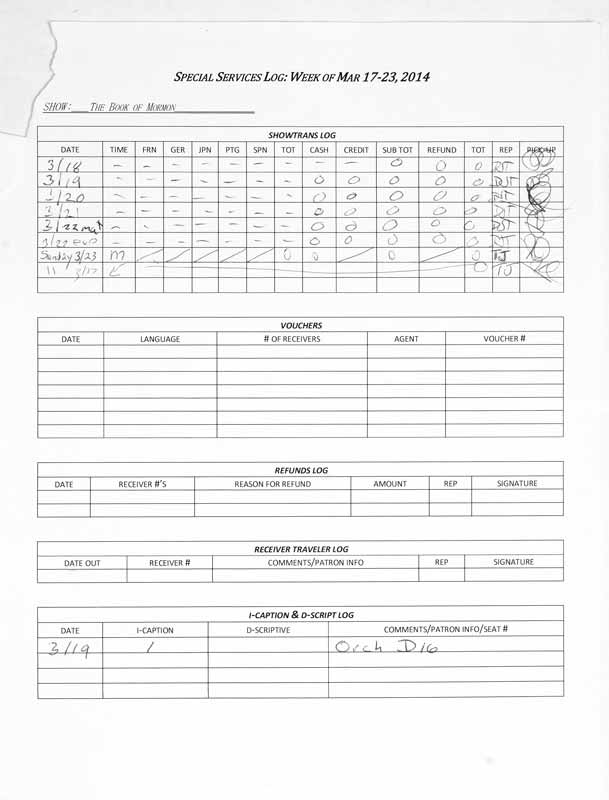 SPECIAL SERVICES LOG: WEEK OF MAR 17-23, 2014
SHOW: THE BOOK OF MORMON
SHOWTRANS LOG
DATE TIME FRN GER JPN PTG SPN TOT CASH CREDIT SUB TOT REFUND TOT REP PICK-UP
3/18 – – – – – – – – 0 0 0
3/19 – – – – – – 0 0 0 0 0
3/20 – – – – – – 0 0 0 0 0
3/21 – – – – – – 0 0 0 0 0
3/22 mat – – – – – – 0 0 0 0 0
3/22 eve – – – – – – 0 0 0 0 0
Sunday 3/23 M / / / / / 0 0 / 0 / 0 TJ
11 E 0 TJ
VOUCHERS
DATE LANGUAGE # OF RECEIVERS AGENT VOUCHER #
REFUNDS LOG
DATE RECEIVER #'S REASON FOR REFUND AMOUNT REP SIGNATURE
RECEIVER TRAVELER LOG
DATE OUT RECEIVER # COMMENTS/PATRON INFO REP SIGNATURE
I-CAPTION & D-SCRIPT LOG
DATE I-CAPTION D-SCRIPTIVE COMMENTS/PATRON INFO/SEAT #
3/19 1 Orch D16